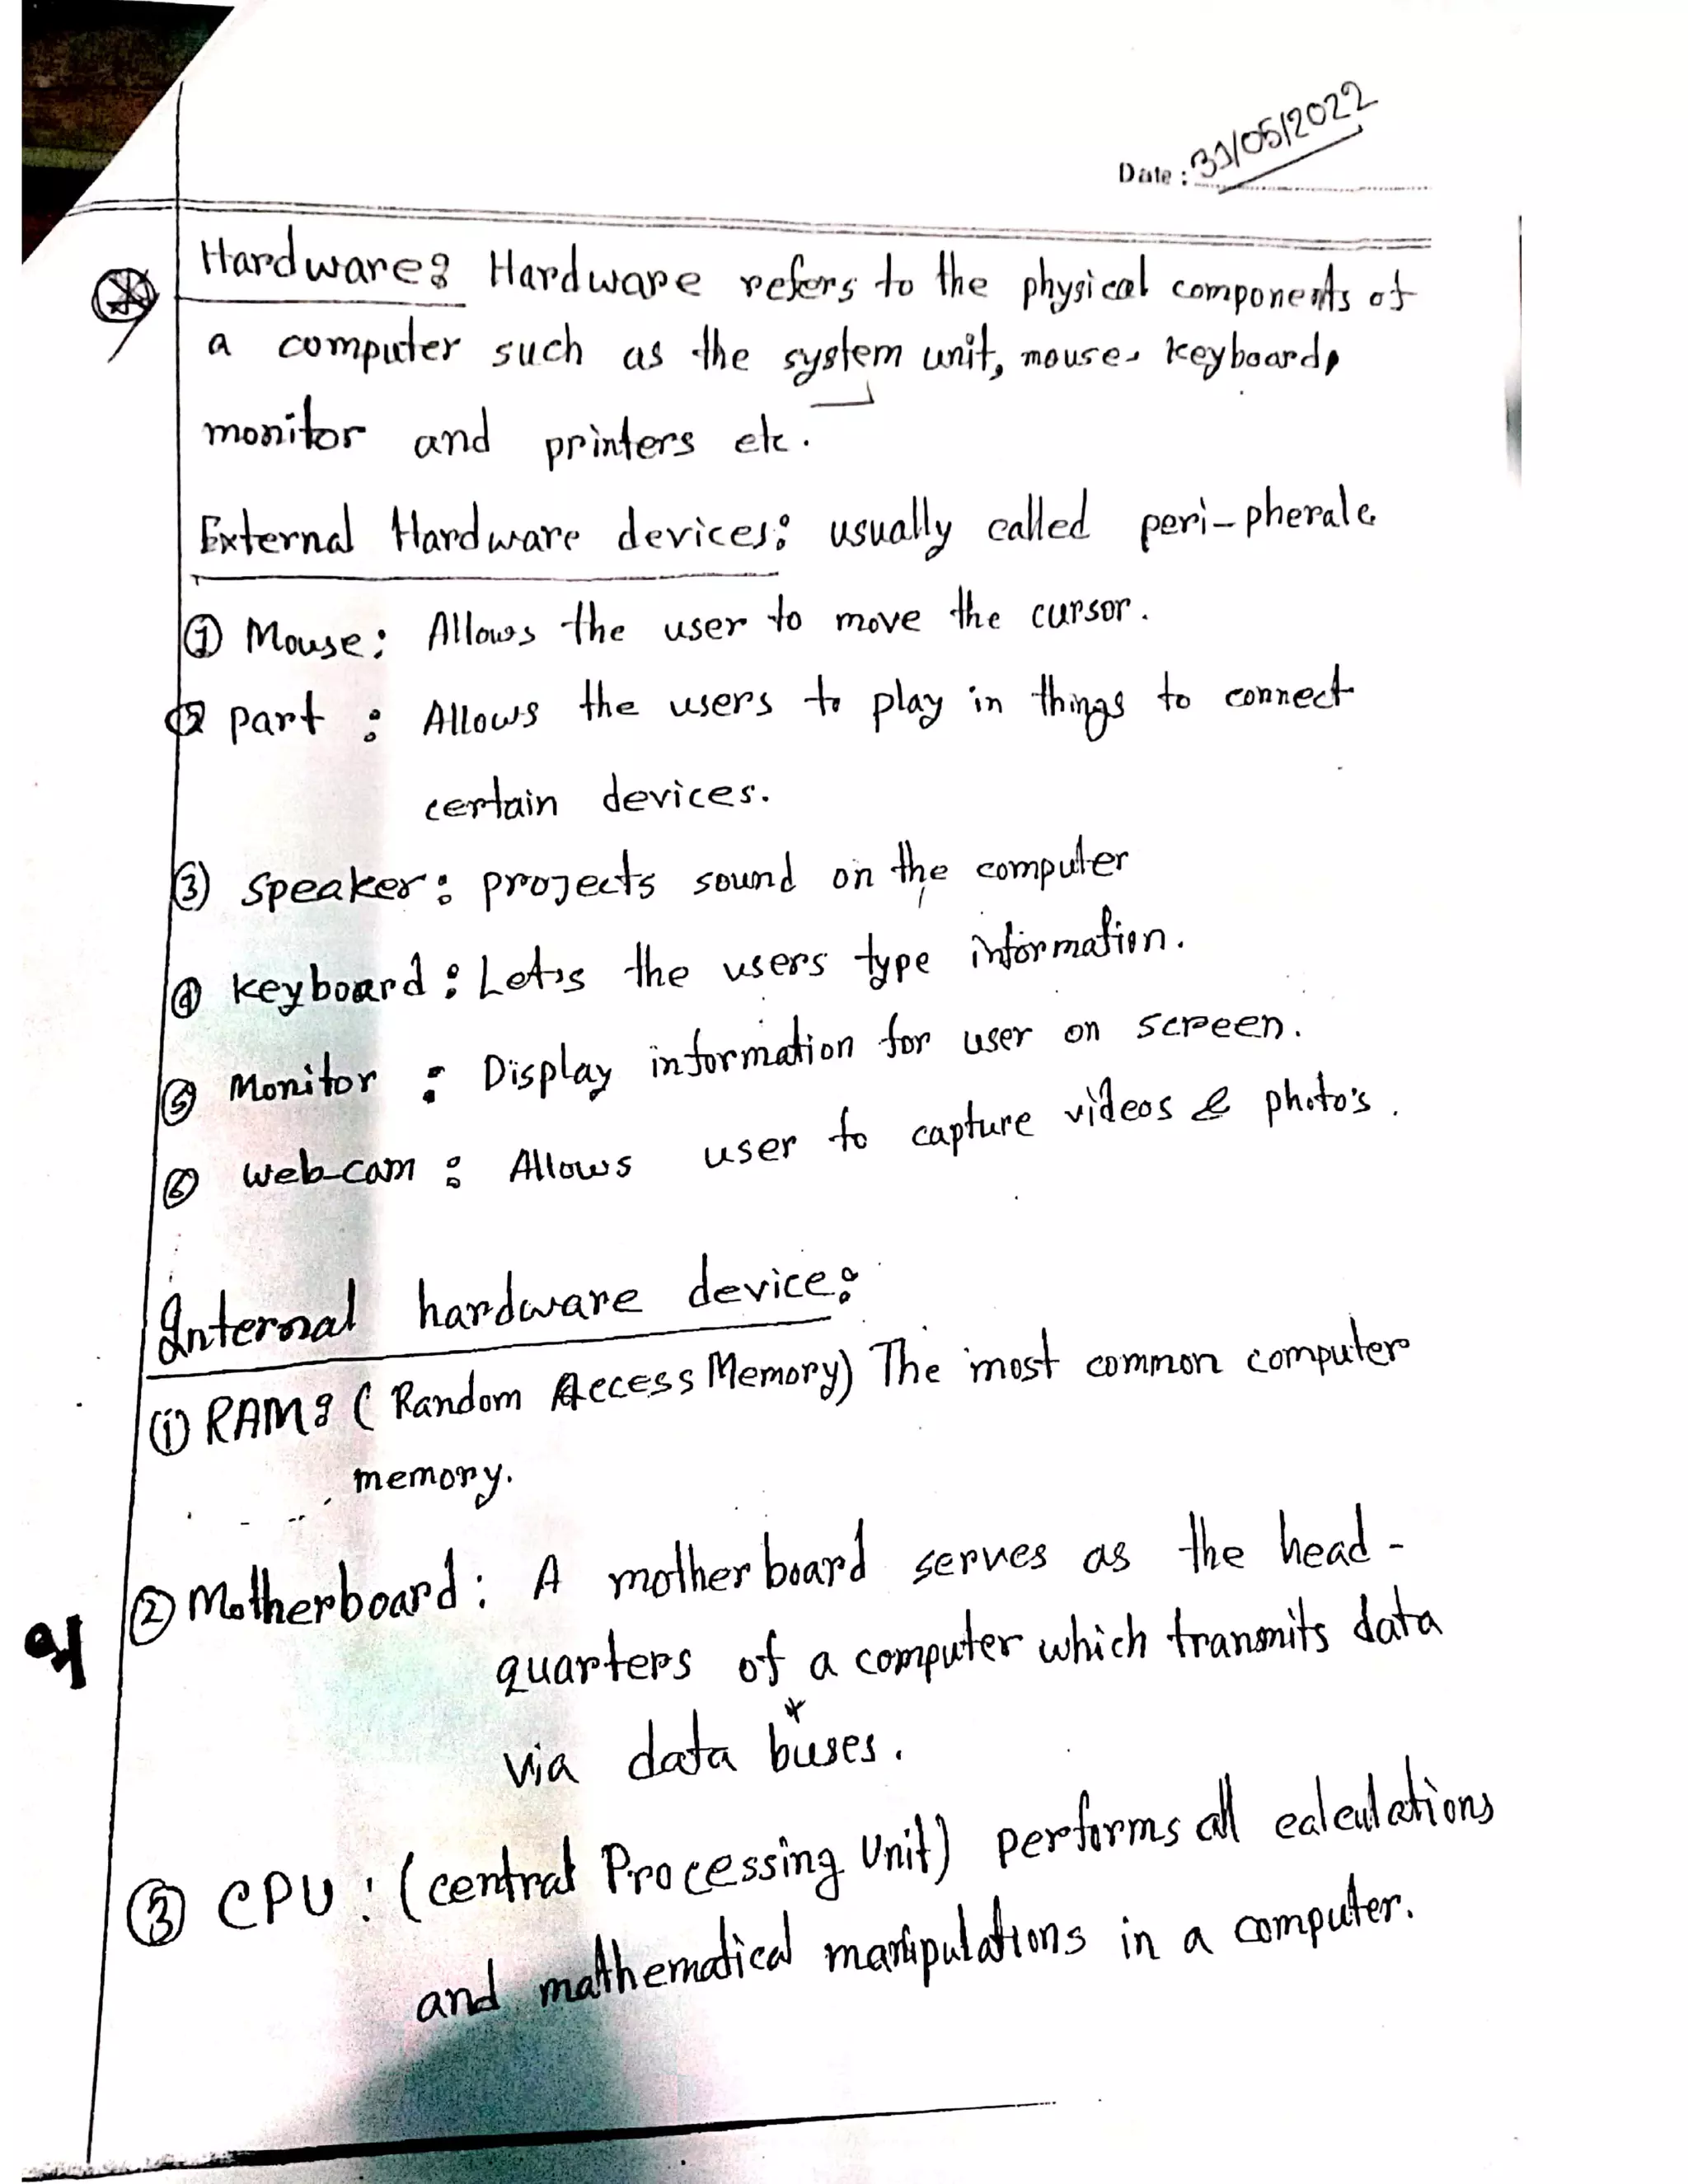 Date : 31/05/2022
Hardware: Hardware refers to the physical components of
a computer such as the system unit, mouse, keyboard,
monitor and printers etc.
External Hardware devices: usually called peri-pherals
① Mouse: Allows the user to move the cursor.
② Part : Allows the users to play in things to connect
certain devices.
③ Speaker: projects sound on the computer
④ keyboard: Let's the users type information.
⑤ Monitor : Display information for user on screen.
⑥ web-cam : Allows user to capture videos & photo's.
Internal hardware device:
① RAM: (Random Access Memory) The most common computer
memory.
② Motherboard: A mother board serves as the head-
quarters of a computer which transmits data
via data buses.
③ CPU: (central Processing Unit) performs all calculations
and mathematical manipulations in a computer.